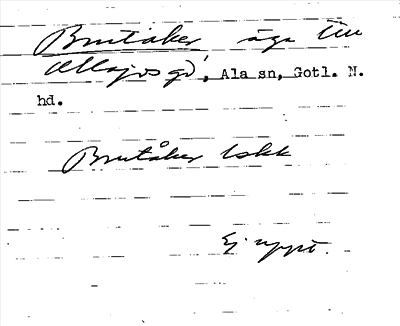 Brutåker äga till
Allajvs gd, Ala sn, Gotl. N.
hd.
Brutåker lskk
Ej uppt.